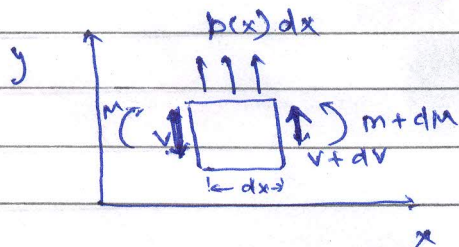 p(x) dx
y
M
V
m + dM
V + dV
dx
x